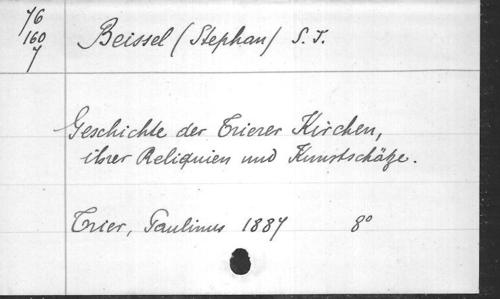 76
160
7
Beissel (Stephan) S. J.
Geschichte der Trierer Kirchen,
ihrer Reliquien und Kunstschätze.
Trier, Paulinus 1887 8°